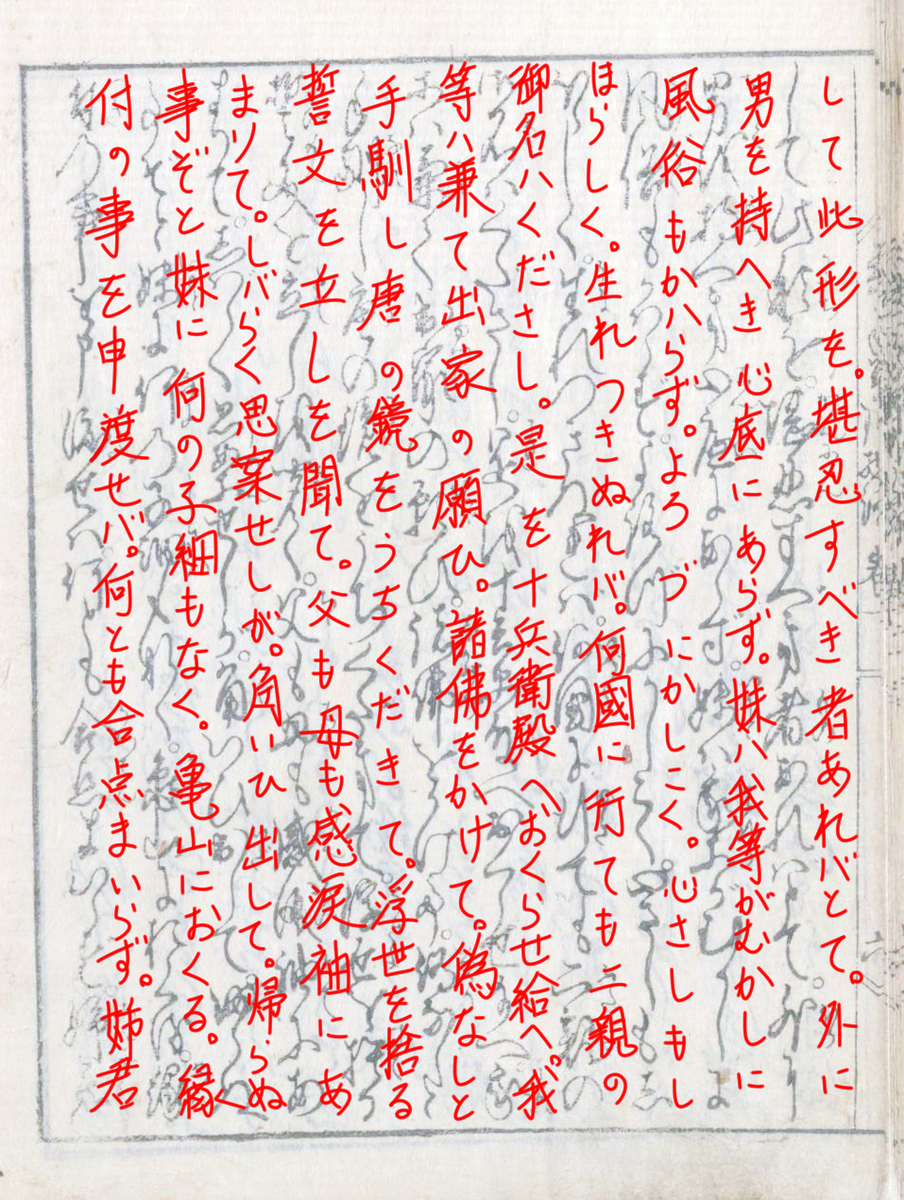 して此形を。堪忍すべき者あれバとて。外に
男を持へき心底にあらず。妹ハ我等がむかしに
風俗もかハらず。よろづにかしこく。心さしもし
ほらしく。生れつきぬれバ。何國に行ても二親の
御名ハくださし。是を十兵衛殿へおくらせ給へ。我
等ハ兼て出家の願ひ。諸佛をかけて。偽なしと
手馴し唐の鏡をうちくだきて。浮世を捨る
誓文を立しを聞て。父も母も感涙袖にあ
まりて。しバらく思案せしが。角いひ出して。帰らぬ
事ぞと妹に何の子細もなく。亀山におくる。縁
付の事を申度せバ。何とも合点まいらず。姉君